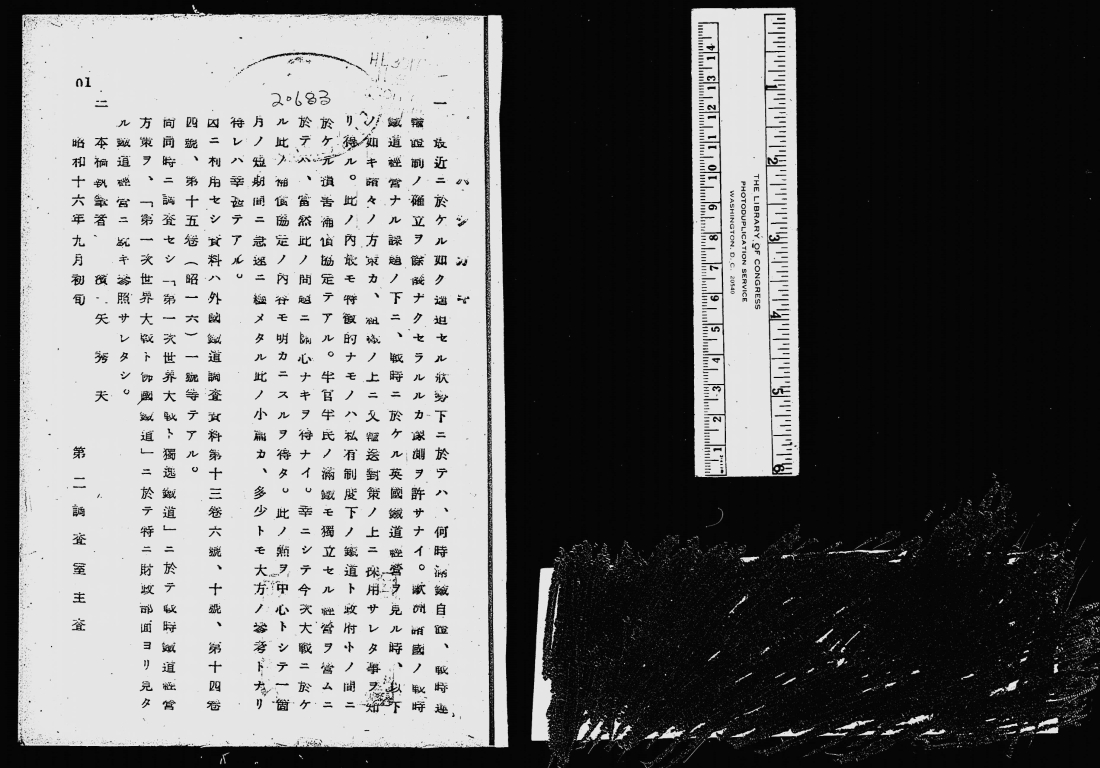 はしがき
一 最近ニ於ケル如ク逼迫セル狀勢下ニ於テハ、何時滿鐵自體、戰時運
輸體制ノ確立ヲ餘儀ナクセラルルカ豫測ヲ許サナイ。歐洲諸國ノ戰時
鐵道經營ナル課題ノ下ニ、戰時ニ於ケル英國鐵道經營ヲ見ル時、以下
ノ如キ諸々ノ方策カ、組織ノ上ニ又輸送對策ノ上ニ採用サレタ事ヲ知
リ得ル。此ノ內最モ特徵的ナモノハ私有制度下ノ鐵道ト政府トノ間ニ
於ケル損害補償協定テアル。半官半民ノ滿鐵モ獨立セル經營ヲ營ムニ
於テハ、當然此ノ問題ニ關心ナキヲ得ナイ。幸ニシテ今次大戰ニ於ケ
ル此ノ補償協定ノ內容モ明カニスルヲ得タ。此ノ點ヲ中心トシテ一箇
月ノ短期間ニ急速ニ纏メタル此ノ小篇カ、多少トモ大方ノ參考トナリ
得レハ幸甚テアル。
因ニ利用セシ資料ハ外國鐵道調查資料第十三卷六號、十號、第十四卷
四號、第十五卷（昭一六）一號等テアル。
尚同時ニ調查セシ「第一次世界大戰ト獨逸鐵道」ニ於テ戰時鐵道經營
方策ヲ、「第一次世界大戰ト佛國鐵道」ニ於テ特ニ財政部面ヨリ見タ
ル鐵道經營ニ就キ參照サレタシ。
二 本稿執筆者 濱矢秀夫
昭和十六年九月初旬 第二調查室主查
01
20683
THE LIBRARY OF CONGRESS
PHOTODUPLICATION SERVICE
WASHINGTON, D. C. 20540
1 2 3 4 5 6 7 8 9 10 11 12 13 14
1 2 3 4 5 6